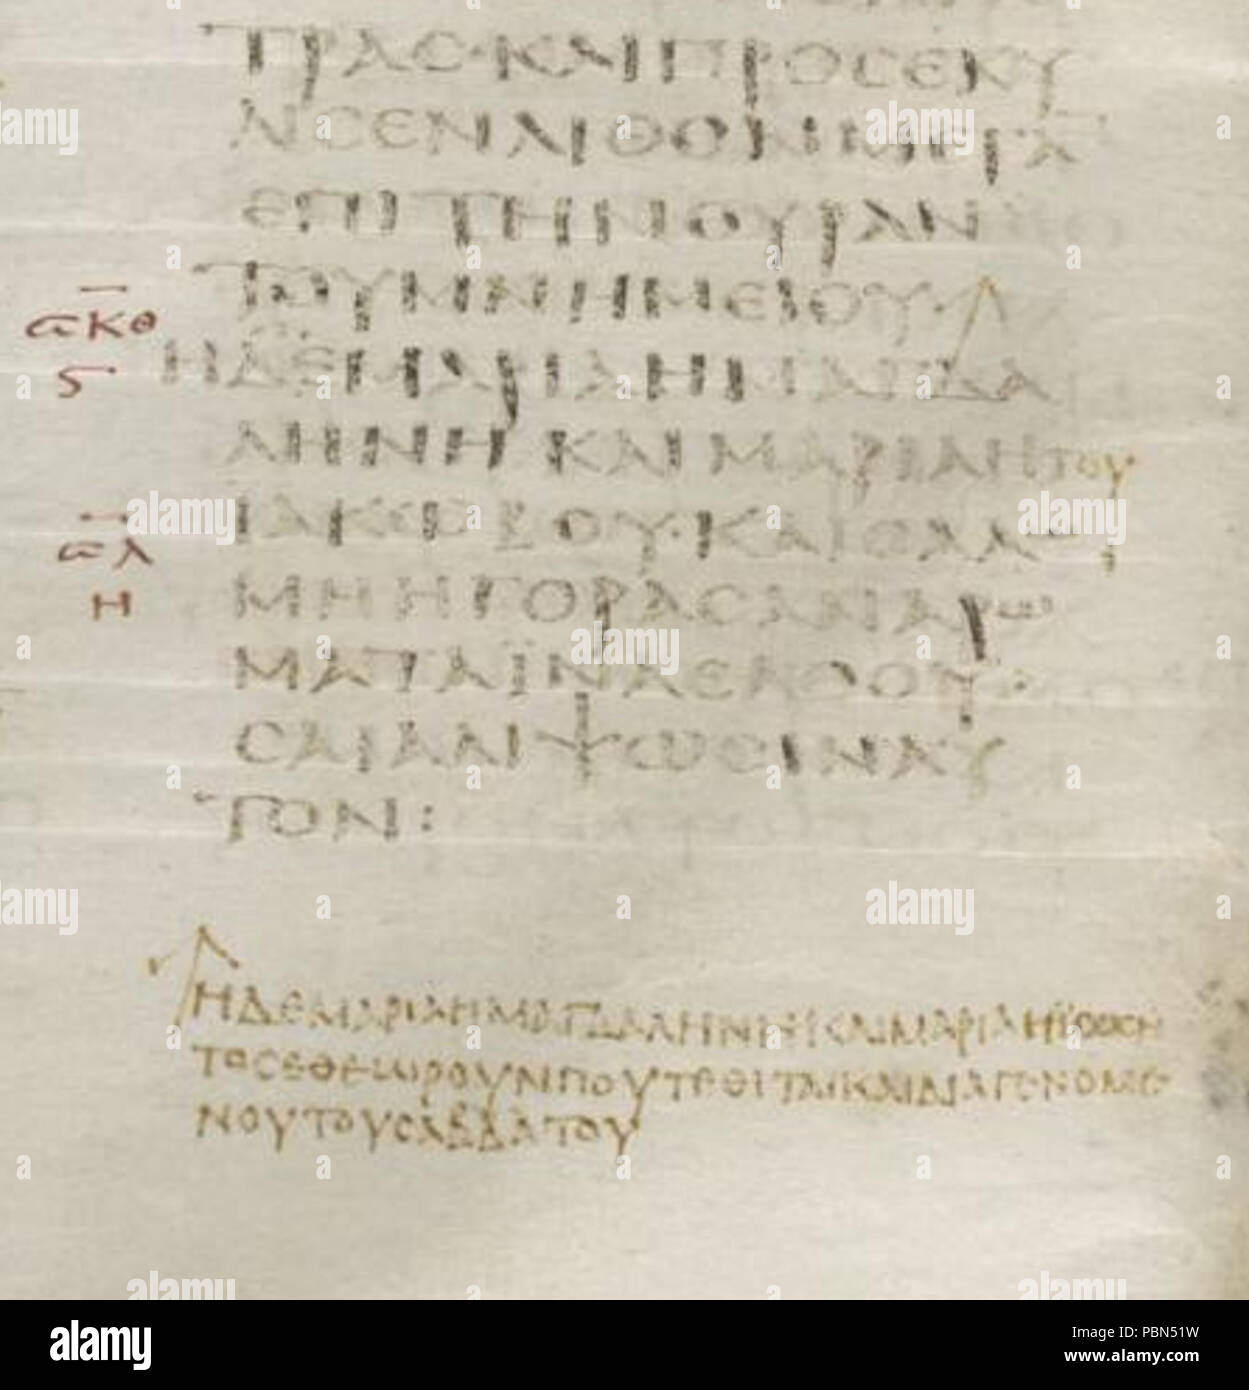 ΤΡΑΣ·ΚΑΙΠΡΟΣΕΚΥ
ΛΙΣΕΝΛΙΘΟΝΜΕΓΑ
ΕΠΙΤΗΝΘΥΡΑΝ
ΤΟΥΜΝΗΜΕΙΟΥ·
Η ΔΕΜΑΡΙΑΗΜΑΓΔΑ
ΛΗΝΗΚΑΙΜΑΡΙΑΗΤΟΥ
ΙΑΚΩΒΟΥ·ΚΑΙΣΑΛΩ
ΜΗΗΓΟΡΑΣΑΝΑΡΩ
ΜΑΤΑΪΝΑΕΛΘΟΥ
ΣΑΙΑΛΙΨΩΣΙΝΑΥ
ΤΟΝ:
ϖΚΘ
ϛ
ϖΛ
Η
ΗΔΕΜΑΡΙΑΗΜΑΓΔΑΛΗΝΗΚΑΙΜΑΡΙΑΗΪΩΣΗ
ΤΟΣΕΘΕΩΡΟΥΝΠΟΥΤΕΘΙΤΑΙΚΑΙΔΙΑΓΕΝΟΜΕ
ΝΟΥΤΟΥΣΑΒΒΑΤΟΥ
alamy
a
alamy
Image ID: PBN51W
www.alamy.com